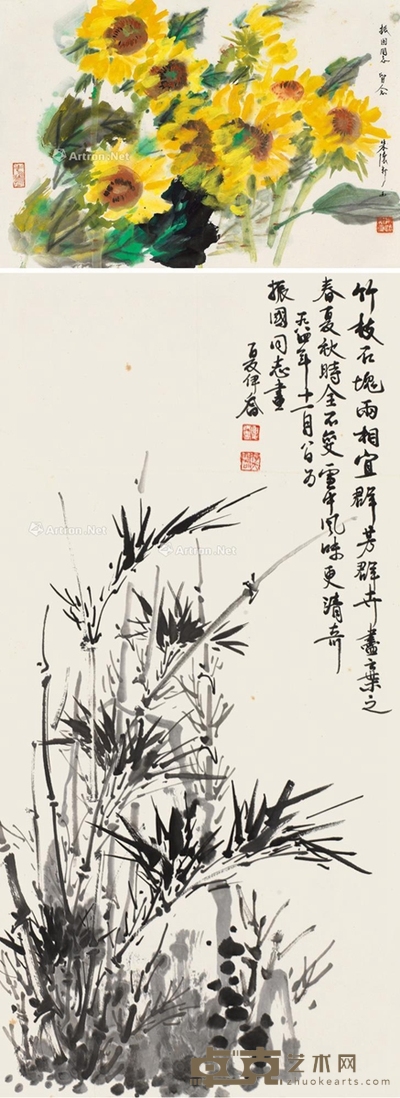 振国同志 留念
朱
Artron.Net
竹枝石块两相宜群芳群卉尽弃之
春夏秋時全不变雪中风味更清奇
一九八四年十一月八日为
振國同志畫
夏伊乔
Artron.Net
Artron.Net
卓克艺术网
zhuokearts.com